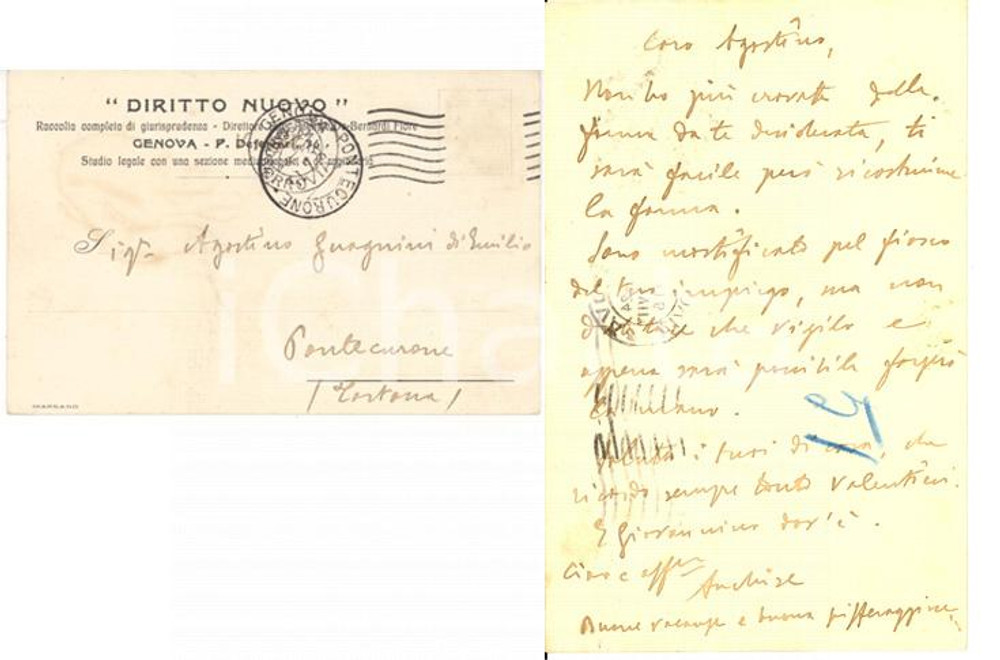 " DIRITTO NUOVO "
Raccolta completa di giurisprudenza - Bernardi Fiore
GENOVA - P.
Studio legale con una sezione
GENOVA
PONTECURONE
Sigr Agostino Guagnini di Emilio
Pontecurone
(Tortona)
Caro Agostino,
Non ho più cravatte della
forma da te desiderata, ti
sarà facile però ricostruire
la forma.
Sono mortificato pel fiasco
del tuo impiego, ma non
dubitare che vigilo e
appena sarà possibile
Saluta i tuoi di casa, che
ricordo sempre tanto volentieri.
E Giovannino dov'è.
Ciao e aff
Anchise
Buone vacanze e buona
iCharta